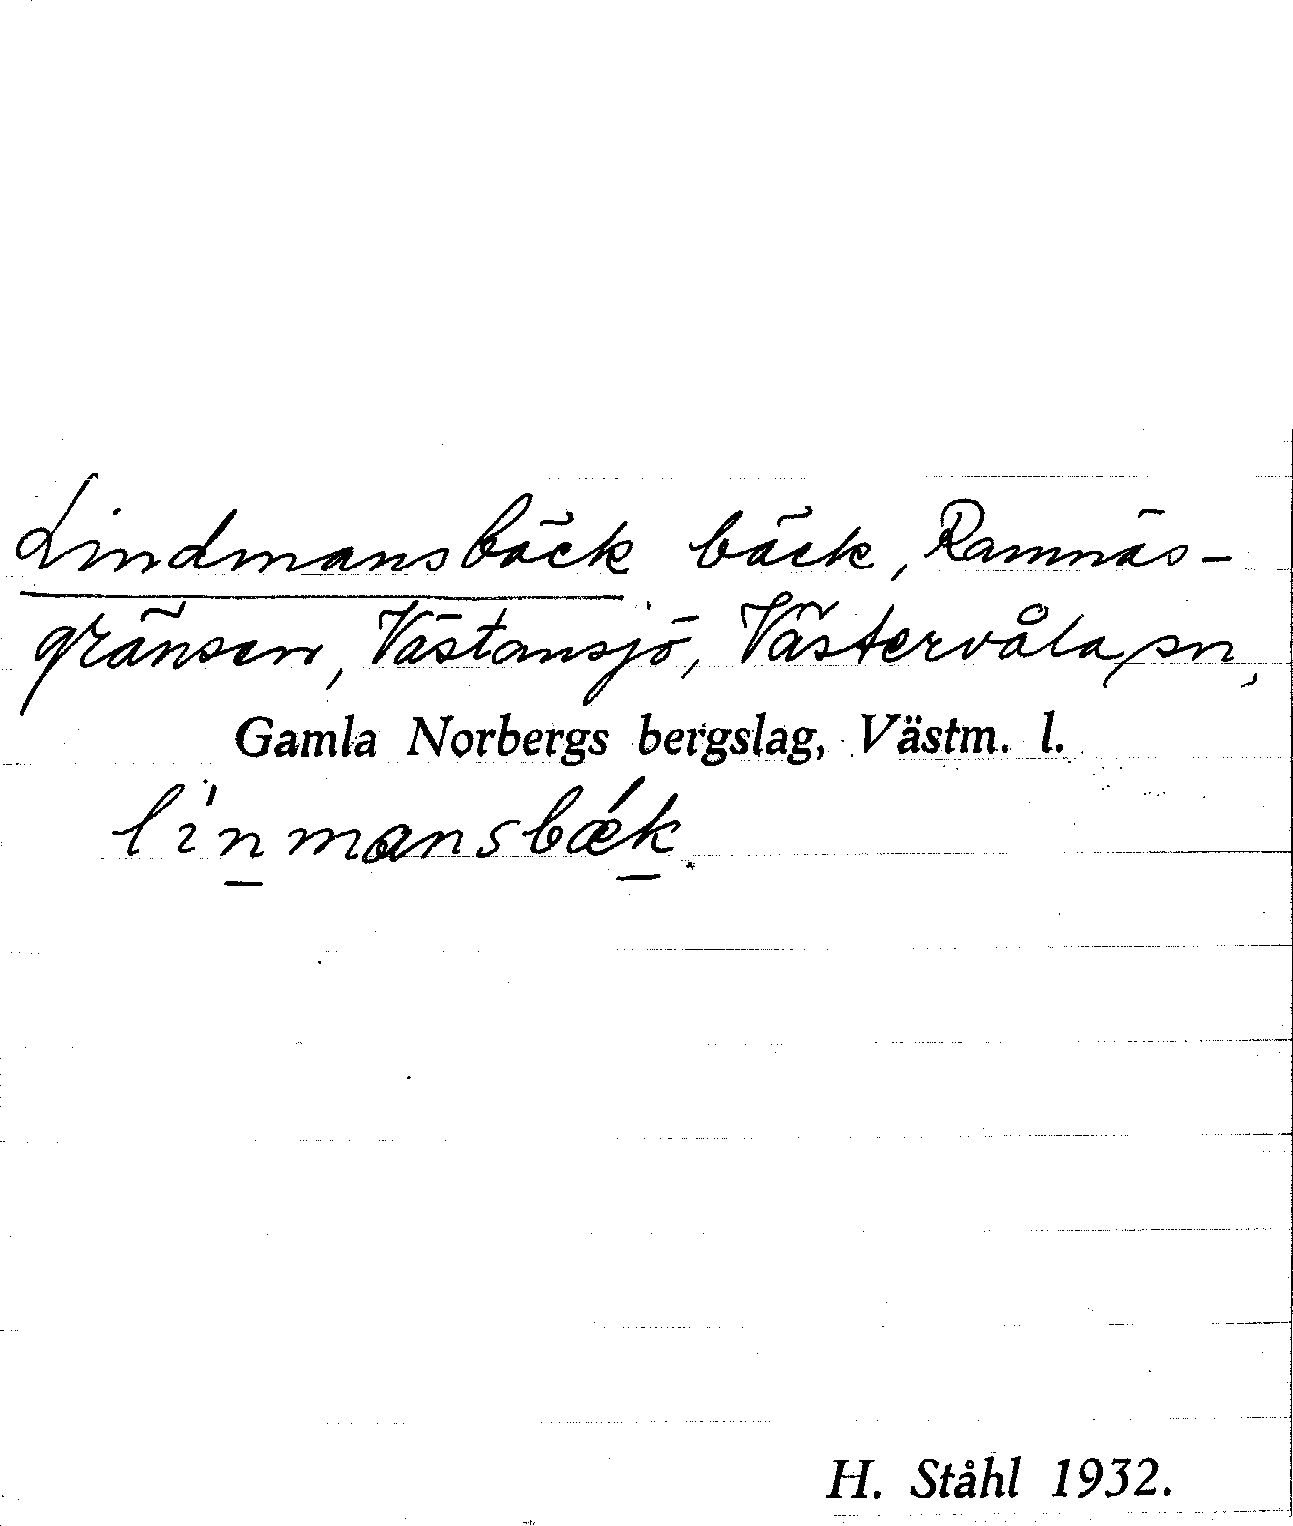 Lindmansbäck bäck, Ramnäs-
gränsen, Västansjö, Västervåla sn,
Gamla Norbergs bergslag, Västm. l.
li'n̲mansbǽk̲.
H. Ståhl 1932.